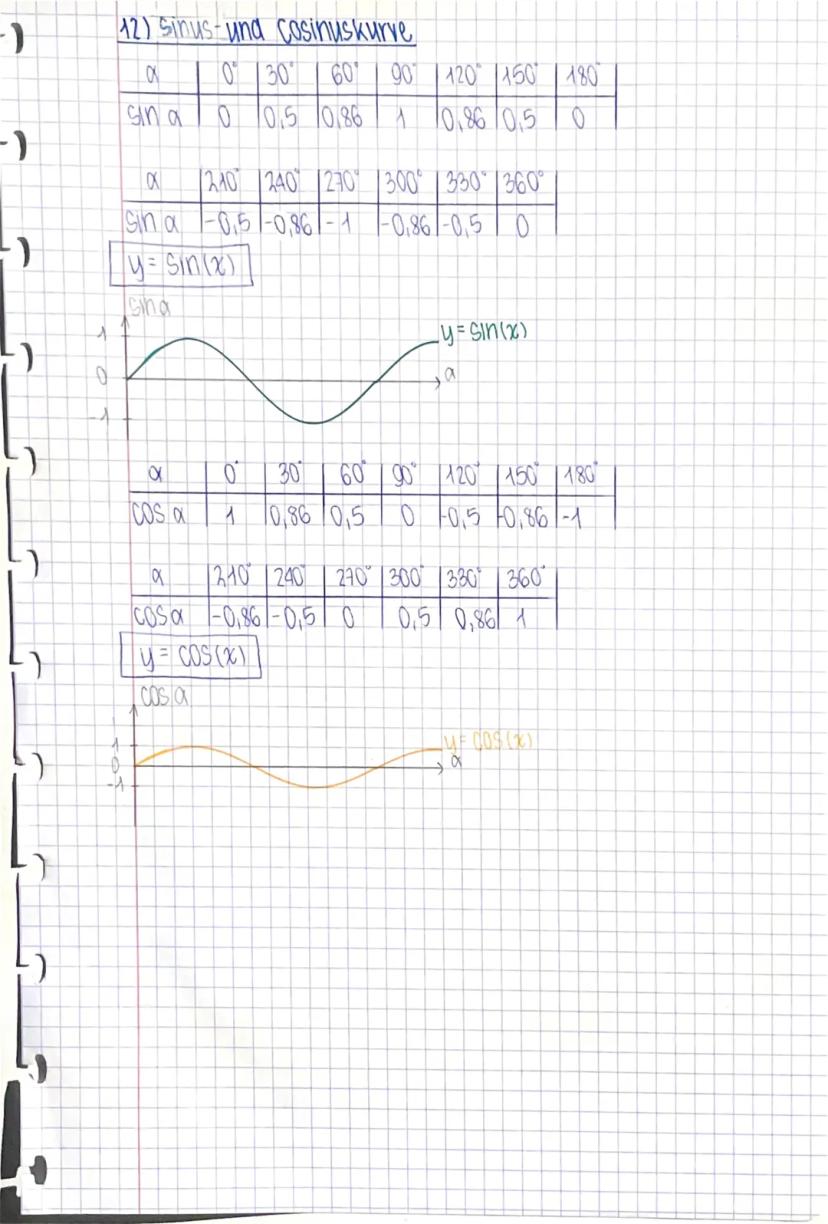 12) Sinus- und Cosinuskurve
α 0° 30° 60° 90° 120° 150° 180°
sin α 0 0,5 0,86 1 0,86 0,5 0
α 210° 240° 270° 300° 330° 360°
sin α -0,5 -0,86 -1 -0,86 -0,5 0
y = sin(x)
sin α
1
y = sin(x)
0
α
-1
α 0° 30° 60° 90° 120° 150° 180°
cos α 1 0,86 0,5 0 -0,5 -0,86 -1
α 210° 240° 270° 300° 330° 360°
cos α -0,86 -0,5 0 0,5 0,86 1
y = cos(x)
cos α
1
y = cos(x)
0
α
-1